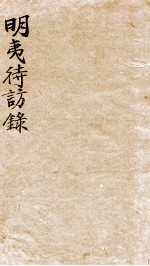 明夷待訪錄